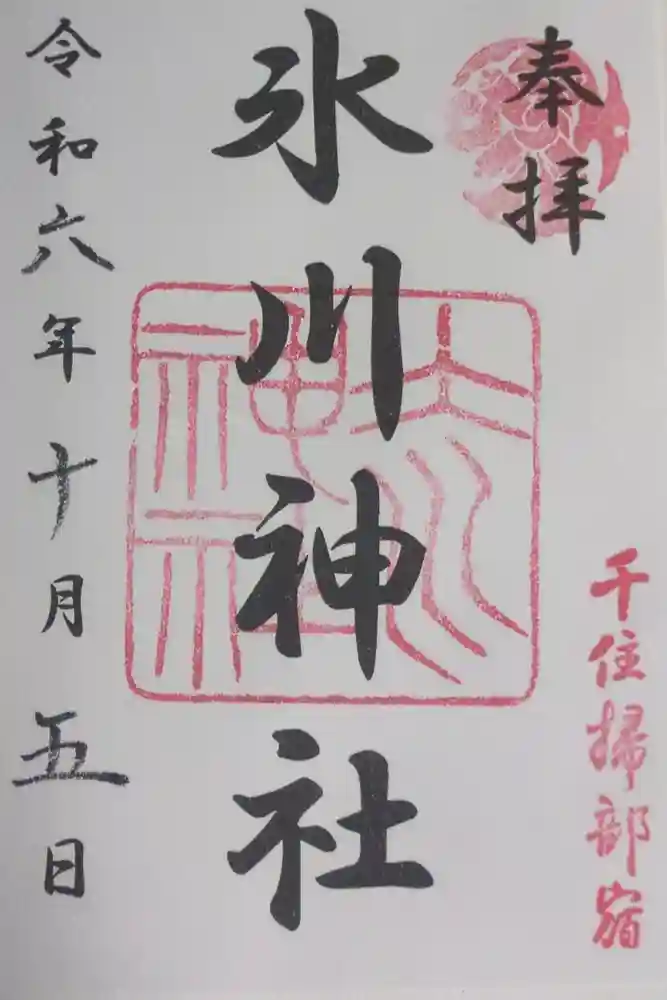 奉拝
千住掃部宿
氷川神社
氷川神社
令和六年十月五日